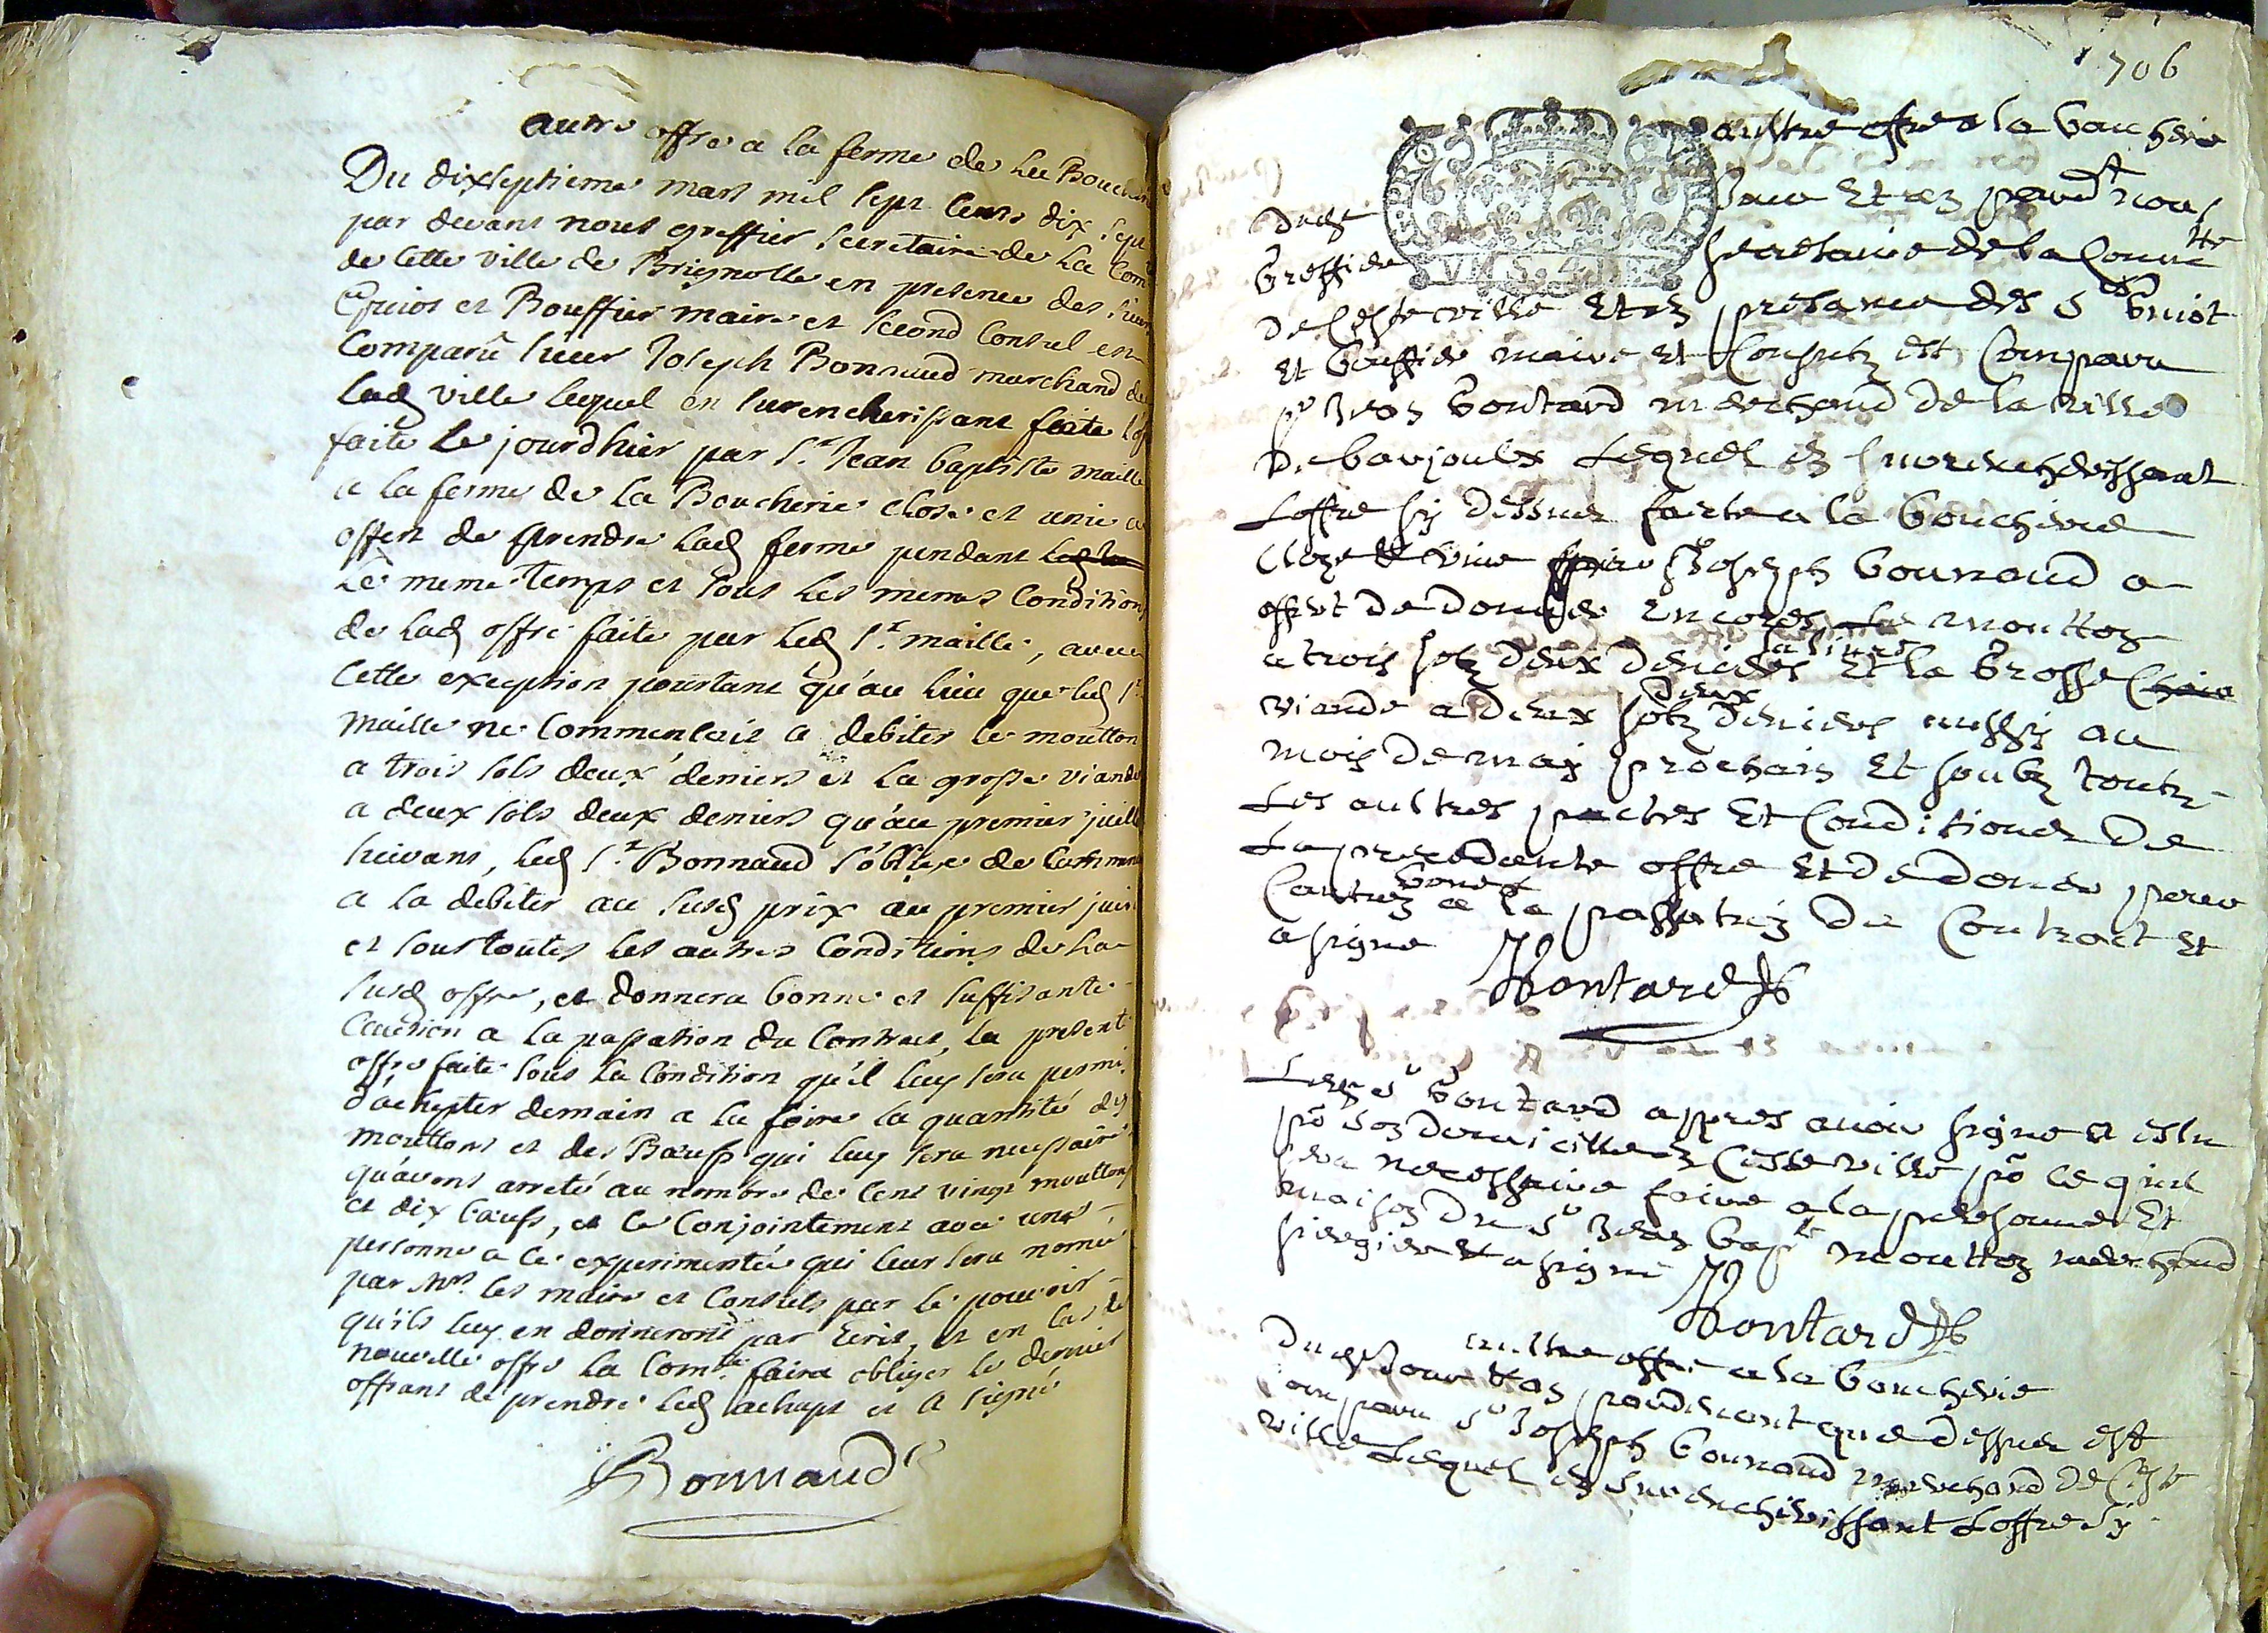 autre offre a la ferme de la Bouch
Du dixseptieme mars mil sept cents dix sept
par devant nous greffier secretaire de la Com
de cette ville de Brignolle en presence des sieurs
Guiot et Bouffier maire et second Consul est
Comparu sieur Joseph Bonnaud marchand de
lad ville lequel en surencherissant faite l'of
faite le jourdhier par Sr Jean baptiste maille
a la ferme de la Boucherie close et unie a
offert de prendre lad ferme pendant
le meme temps et sous les memes Condition
de lad offre faite par led Sr maille, avec
cette exception pourtant qu'au lieu que led Sr
maille ne commencoit a debiter le moutton
a trois sols deux deniers et la grosse viande
a deux sols deux deniers qu'au premier juill
suivant, led Sr Bonnaud s'oblige de Comman
a la debiter au susd prix au premier juin
et sous toutes les autres Conditions de la
susd offre, et donnera bonne et suffisante
Caution a la passation du Contract, la present
offre faite sous la Condition qu'il luy sera permi
d'achepter demain a la foire la quantité des
mouttons et des Bœufs qui luy sera necessaire
qu'avons arreté au nombre de cent vingt mouttons
et dix bœufs, et ce Conjointement avec une
personne a ce experimentée qui leur sera nomée
par Mrs les maire et Consuls par le pouvoir
qu'ils luy en donneront par écrit, et en cas de
nouvelle offre la Comté faira obliger le dernier
offrant de prendre led achapt et a signé
Bonnaud
706
aultre offre a la boucherie
Dud jour et en pardt nous
Greffier secretaire de la Commté
de ceste ville et en presance des Srs Guiot
et bouffier maire et Consulz est Compareu
Sr Jean bontard marchand de la ville
de barjoulx Lequel en surencherissant
Loffre sy dessus faicte a la boucherie
Cloze et unie par Sr Joseph bounaud a
offert de donner encores le moutton
a trois solz deux deniers la livre et la grosse
viande a deux solz deux deniers aussy au
mois de may prochain et soubz toutz
Les aultres pactes et Conditions de
La precedante offre et de donner
bone Caution a la passation du Contract et
a signe
Hontard
Led Sr bontard appres avoir signe a eslu
po son domicille en ceste ville po ce quil
sera necessaire faire a la personne et
maison du Sr Jean bapte moutton marchand
siergier et a signe
Hontard
aultre offre a la boucherie
Dud Jour et en pardevant que dessus est
compareu Sr Joseph bounaud marchand de ceste
ville Lequel en surencherissant Loffre sy